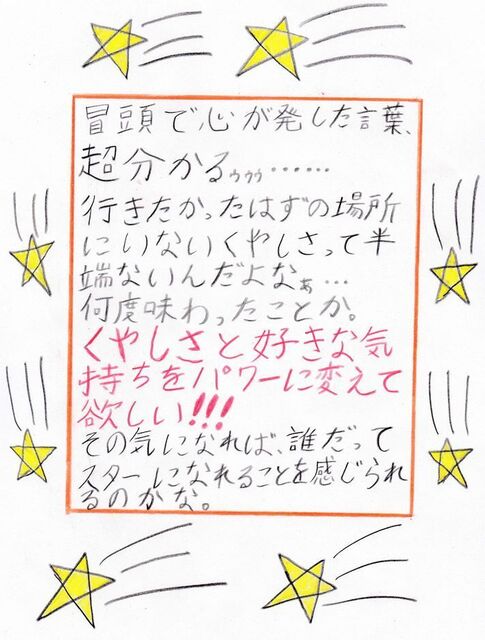 冒頭で心が発した言葉、
超分かるぅぅぅ……
行きたかったはずの場所
にいないくやしさって半
端ないんだよなぁ…
何度味わったことか。
くやしさと好きな気
持ちをパワーに変えて
欲しい!!!
その気になれば、誰だって
スターになれることを感じられ
るのかな。